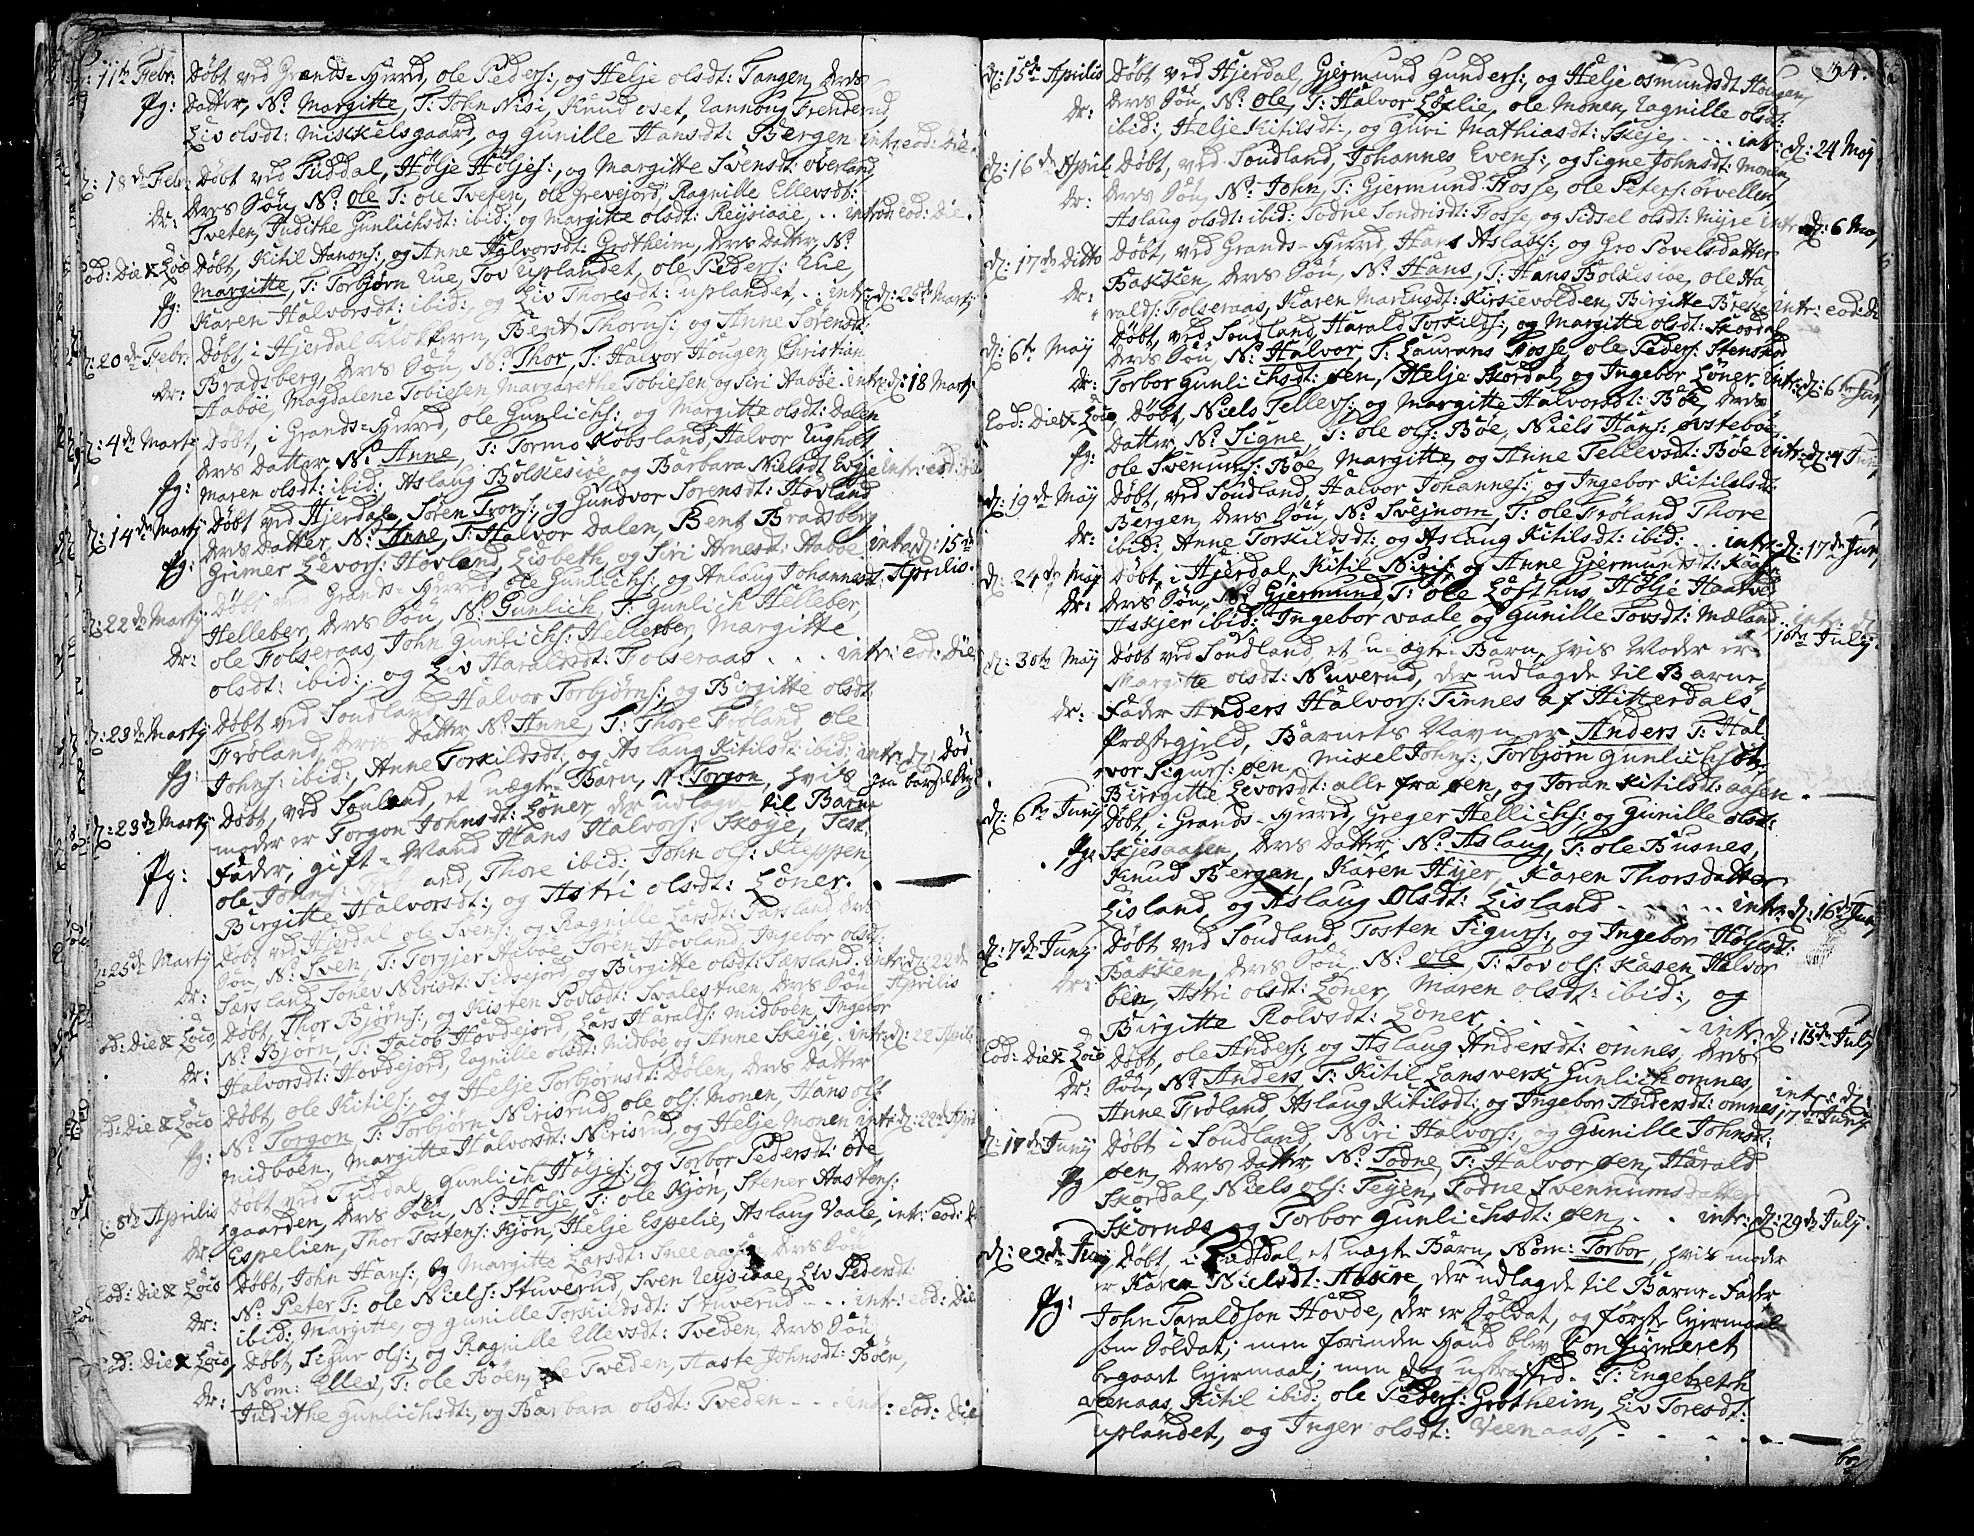 d: 11te Febr: Døbt ved Grands-Herred, ole Peders: og Helje olsdt: Tangen, deres
pg: Datter, N: Margitte, T: John Nisi, Knud oset, Rannoug Frenderud,
Liv olsdt: Mikkelsgaard, og Gunille Hansdt: Bergen intr: eod: Die.
d: 18de Febr: Døbt ved Tuddal, Hølje Høljes: og Margitte Svensdt: øverland,
deres Søn, N: Ole T: ole Tveten, ole Grevejord, Ragnille Ellevsdt:
dr: Tveten, Judithe Gunlichsdt: ibid: og Margitte olsdt: Reysiaae, .. intr: eod: Die.
Eod: Die & Loco Døbt, Kitil Hanons: og Anne Halvorsdt: Grotheim, deres Datter, N:
Margitte, T: Torbjørn Rue, Tov uplandet, ole Peders: Rue,
pg: Karen Halvorsdt: ibid:, og Liv Thoresdt: uplandet .. intr: d: 25de Martij
d: 20de Febr: Døbt, i Hjerdal Bent Thorus: og Anne Sørensdt:
Bradsberg, deres Søn, N: Thor, T: Halvor Hougen, Christian
dr: Habøe, Magdalene Tobiesen, Margarethe Tobiesen, og Siri Habøe. intr: d: 18 Martij
d: 4de Martij Døbt, i Grands-Herred, ole Gunlichs: og Margitte olsdt: Dalen
deres Datter, N: Anne, T: Tormo Kobsland, Halvor
pg: Maren olsdt: ibid:, Aslaug Bolkesiøe, og Barbara Nielsdt Evje intr: eod: die
d: 14de Martij Døbt ved Hjerdal, Søren Ivers: og Gundvor Sørensdt: Høvland
deres Datter, N: Anne, T: Halvor Dalen, Bent Bradsberg
pg: Grimer Levors: Høvland, Lisbeth og Siri Arnesdt: Habøe intr: d: 15de
Aprilis.
d: 22de Martij Døbt ved Grands-Herred ole Gunlichs: og Anlaug Johannesdt:
Helleber, deres Søn, N: Gunlich, T: Gunlich Helleber,
ole Folseraas, John Gunlichs: Helleber, Margitte
dr: olsdt: ibid:, og Liv Haraldsdt: Folseraas . . . intr: eod: Die
d: 23de Martij Døbt ved Soudland Halvor Torbjørns: og Birgitte olsdt:
Frøland, deres Datter, N: Anne, T: Thore Frøland, ole
pg: Johns: ibid:, Anne Torkildsdt: og Aslaug Kitilsdt: ibid: intr: d: Død
paa barsel Seng
d: 23de Martij Døbt, ved Souland, et uægte Barn, N: Torgon, hvis
moder er Torgon Johnsdt: Løner, der udlagde til Barne
pg: Fader, gift-Mand Hans Halvors: Skøje, Test:
ole Johns: and, Thore ibid:, John ols: Kleppen,
Birgitte Halvorsdt:, og Astri olsdt: Løner.
d: 25de Martij Døbt ved Hjerdal ole Svens: og Ragnille Larsdt: Særsland, deres
Søn, N: Sven, T: Torgjer Habøe, Søren Høvland, Ingebor olsdt:
dr: Særsland, og Birgitte olsdt: Særsland. intr: d: 22de
Aprilis
Eod: Die & Loco Døbt, Thor Bjørns:, og Kisten Povlsdt: Svalestuen, deres Søn
N: Bjørn, T: Jacob Hovdejord, Lars Haralds: Midbøen, Ingebor
dr: Halvorsdt: Hovdejord, Ragnille olsdt: Midbøe, og Anne Skeije, intr: d: 22 Aprilis
Eod: Die & Loco Døbt, ole Kitils: og Helje Torbjørnsdt: Dølen, deres Datter
N: Torgon T: Torbjørn Nirisrud, ole ols: Monen, Hans ols:
pg: midbøen, Margitte Halvorsdt: Nirisrud, og Helje Monen intr: d: 22de Aprilis
d: 8de Aprilis Døbt ved Tuddal, Gunlich Høljes: og Torbor Pedersdt: øde
gaarden, deres Søn, N: Hølje, T: ole Kjøn, Stener Hastens:
dr: Espelien, Thor Tostens: Kjøn, Helje Espelie, Aslaug Vaale, intr: eod: die
Eod: Die & Loco Døbt, John Hans: og Margitte Larsdt: deres Søn
N: Peter T: ole Niels: Stuverud, Sven Reysiaae, Liv Pedersdt:
dr: ibid: Margitte, og Gunille Torkildsdt: Stuverud - . . intr: eod: Die
Eod: Die & Loco, Døbt, Sigur ols: og Ragnille Ellevsdt: Tveden, deres Søn
Nom: Ellev, T: ole Bøen, ole Tveden, Haste Johnsdt: Bøen,
dr: Judithe Gunlichsdt:, og Barbara olsdt: Tveden - . . intr: eod: Die
34.
d: 15de Aprilis Døbt ved Hjerdal, Gjermund Gunders: og Helje osmundsdt Hougen,
deres Søn, N: Ole, T: Halvor Løflie, ole Monen, Ragnille olsdt:
dr: ibid:, Helje Kitilsdt:, og Guri Mathiasdt: Skeje . . . intr: d: 24 Maij
d: 16de April Døbt, ved Soudland, Johannes Evens: og Signe Johnsdt: Monen,
deres Søn, N: John, T: Gjermund Fosse, ole Peters: ørvellen,
dr: Aslaug olsdt: ibid: Todne Sondrisdt: Fosse, og Sidsel olsdt: Myre intr: d: 6 Maij
d: 17de Ditto Døbt, ved Grands-Herred, Hans Aslaks: og Gro Povelsdatter
Bakken, deres Søn, N: Hans, T: Hans Bolkesiøe, ole Ha
dr: ralds: Folseraas, Karen Markusdt: Kirkevolden, Birgitte intr: eod: die
d: 6te Maij Døbt, ved Soudland, Harald Torkilds: og Margitte olsdt: Skordal
deres Søn, N: Halvor, T: Laurans Fosse, ole Peders:
dr: Torbor Gunlichsdt: øen, Helje Skordal, og Ingebor Løner. intr: d: 6te Junij
Eod: Die & Loco, Døbt, Niels Tellevs: og Margitte Halvorsdt: Bøe, deres
Datter, N: Signe, T: ole ols: Bøe, Niels Hans: øvstebøe,
pg: ole Svenuns: Bøe, Margitte, og Anne Tellevsdt: Bøe intr: d: 4 Junij
d: 19de Maij Døbt, ved Soudland, Halvor Johannes: og Ingebor Kitilsdt:
Bergen, deres Søn, N: Svejnom, T: ole Frøland Thore
dr: ibid: Anne Torkildsdt: og Aslaug Kitilsdt: ibid: . . intr: d: 17de Junij
d: 24de Maij Døbt, i Hjerdal, Kitil Niris: og Anne Gjermundsdt:
dr: deres Søn, N: Gjermund, T: ole Løfthus, Hølje Haatvet
Askjer ibid: Ingebor Vaale og Gunille Tovsdt: Mæland . . intr: d:
16de Julij.
d: 30te Maij Døbt ved Soudland et uægte Barn, hvis Moder er
Margitte olsdt: Nuverud, der udlagde til Barne
dr: Fader Anders Halvors: Tinnes af Hitterdals
Præstegjeld, Barnets Navn er Anders T: Hal
vor Sigurs: øen, Mikel Johns:, Torbjørn Gunlichs: øen,
Birgitte Levorsdt: alle fra øen, og Joran Kitilsdt: aasen .
d: 6te Junij Døbt, i Grands-Herred, Greger Hellichs: og Gunille olsdt:
pg: Skjesaasen, deres Datter, N: Aslaug, T: ole Busnes,
Knud Bergan, Karen Hijer, Karen Thorsdatter
Lisland, og Aslaug Olsdt: Lisland - - - . . intr: d: 16de Junij
d: 7de Junij Døbt ved Soudland, Tosten Sigurs:, og Ingebor Høljesdt:
Bakken, deres Søn N: Ole T: Tov ols: Kaasen, Halvor
dr: øen, Astri olsdt: Løner, Maren olsdt: ibid:, og
Birgitte Rolvsdt: Løner, . . . . - intr: d: 15de Julij
Eod: Die & Loco Døbt, ole Anders: og Aslaug Andersdt: omnes, deres
dr: Søn, N: Anders, T: Kitil Lansverk Gunlich omnes,
Anne Frøland, Aslaug Kitilsdt: og Ingebor Andersdt: omnes intr: d:
17de Junij
d: 17de Junij Døbt i Soudland, Niri Halvors:, og Gunille Johnsdt:
øen, deres Datter, N: Todne, T: Halvor øen, Harald
pg Skordal, Niels ols: Teijen, Todne Svennumsdatter
Skornæs, og Torbor Gunlichsdt: øen . . intr: d: 29de Julij.
d: 29de Junij Døbt, i et uægte Barn, Nom: Torbor, hvis moder
er Karen Nielsdt: Haskre, der udlagde til Barne-Fader
pg: John Taraldson Hovde, der er Soldat, og første Lejermaal
som Soldat; men forinden haud blev Confirmeret
begaaet Lejermaal; men dog ustraffed. T: Engebreth
Veenaas, Kitil ibid: ole Peders: Grotheim, Liv Toresdt:
uplandet, og Inger olsdt: Veenaas, - . . .